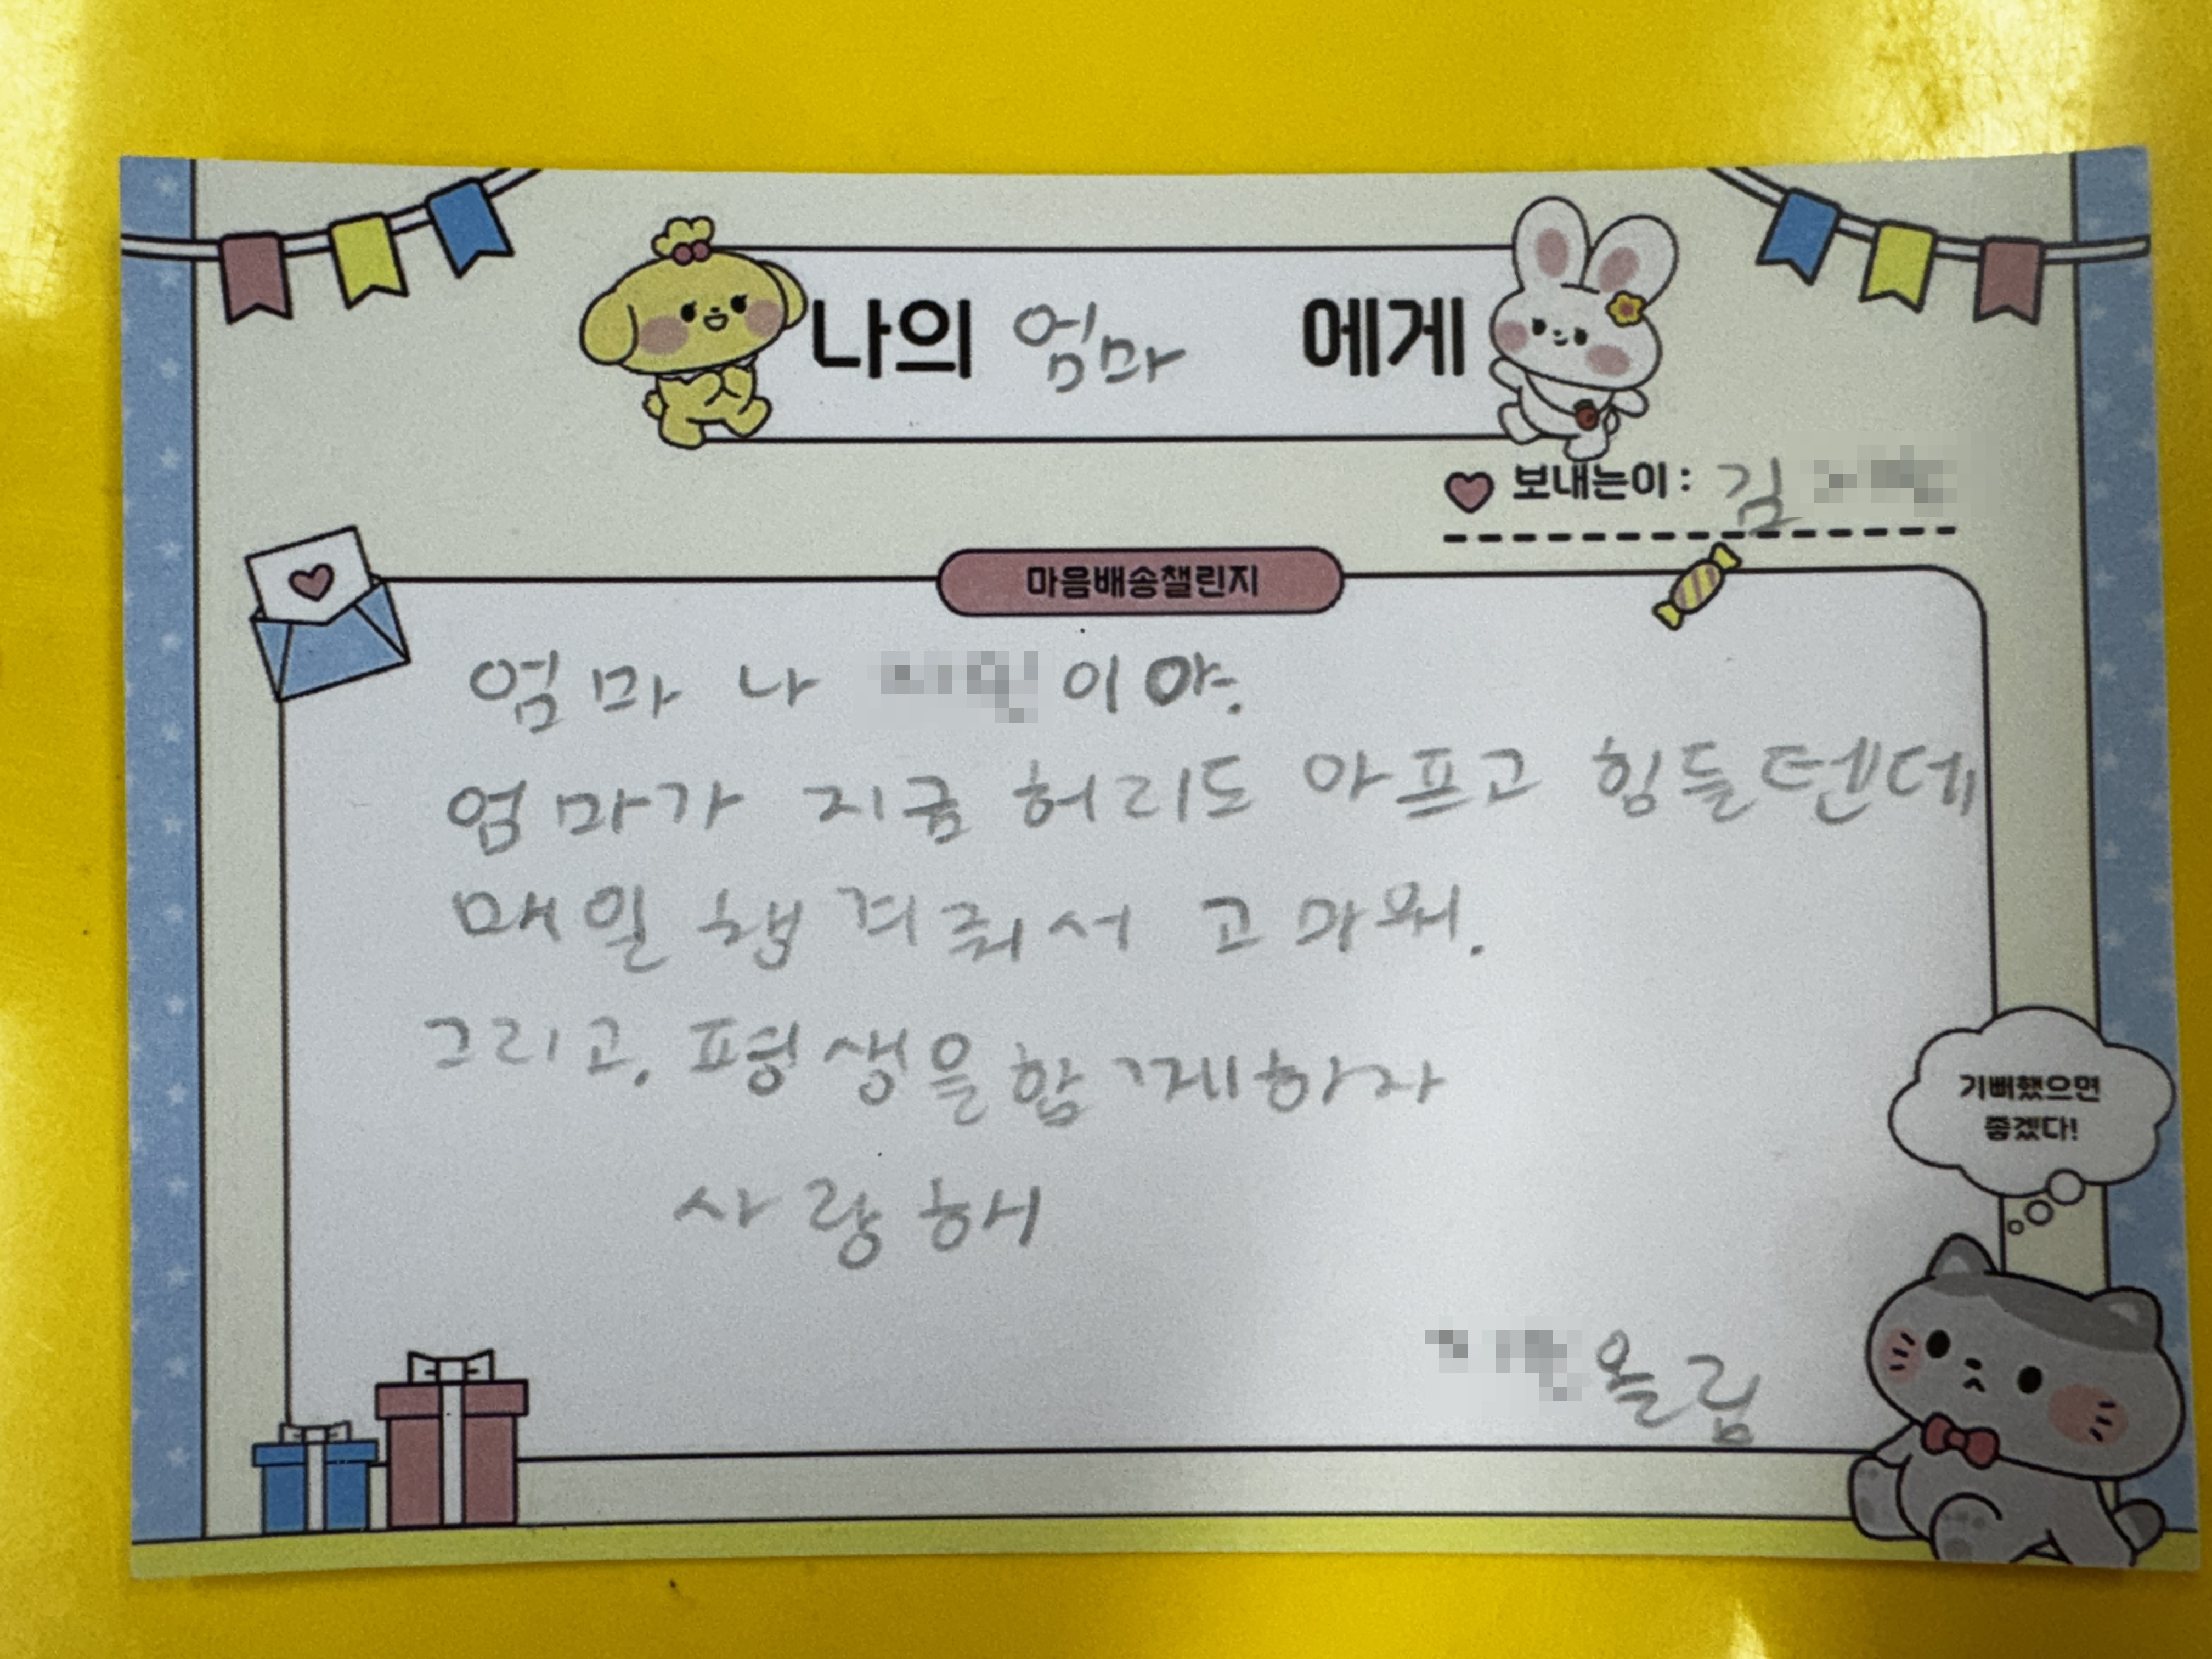 나의 엄마 에게
보내는이 : 김
마음배송챌린지
엄마 나 이야.
엄마가 지금 허리도 아프고 힘들텐데
매일 챙겨줘서 고마워.
그리고, 평생을함께하자
사랑해
올림
기뻐했으면
좋겠다!